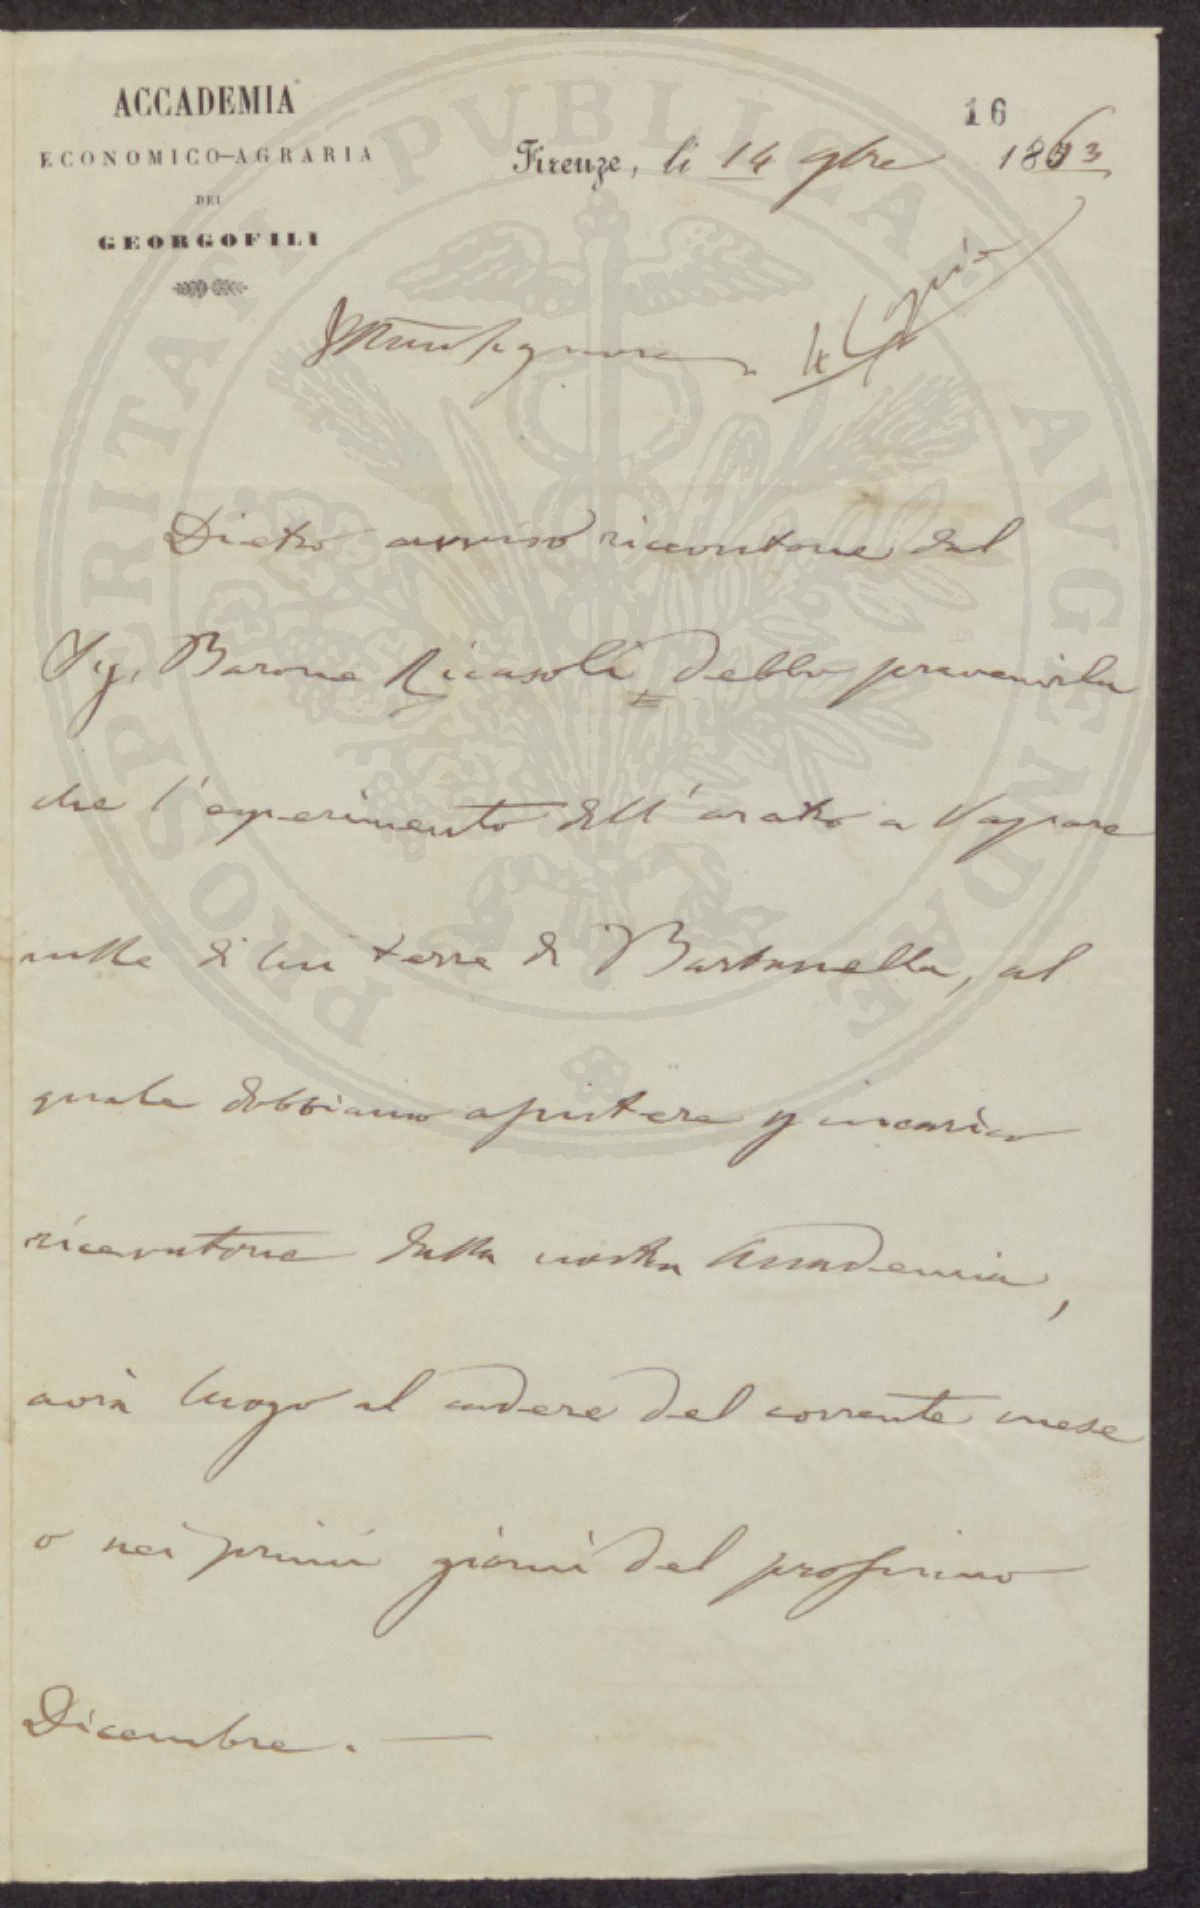 ACCADEMIA
ECONOMICO-AGRARIA
DEI
GEORGOFILI
16
Firenze, li 14 9bre 1863
Dietro avviso ricevutone dal
Sig. Barone Ricasoli debbo prevenirla
che l'esperimento dell'aratro a Vapore
nelle di lui terre di Barbanella, al
quale dobbiamo assistere p incarico
ricevutone dalla nostra Accademia,
avrà luogo al cadere del corrente mese
o nei primi giorni del prossimo
Dicembre. —
PROSPERITATI PVBLICAE AVGENDAE